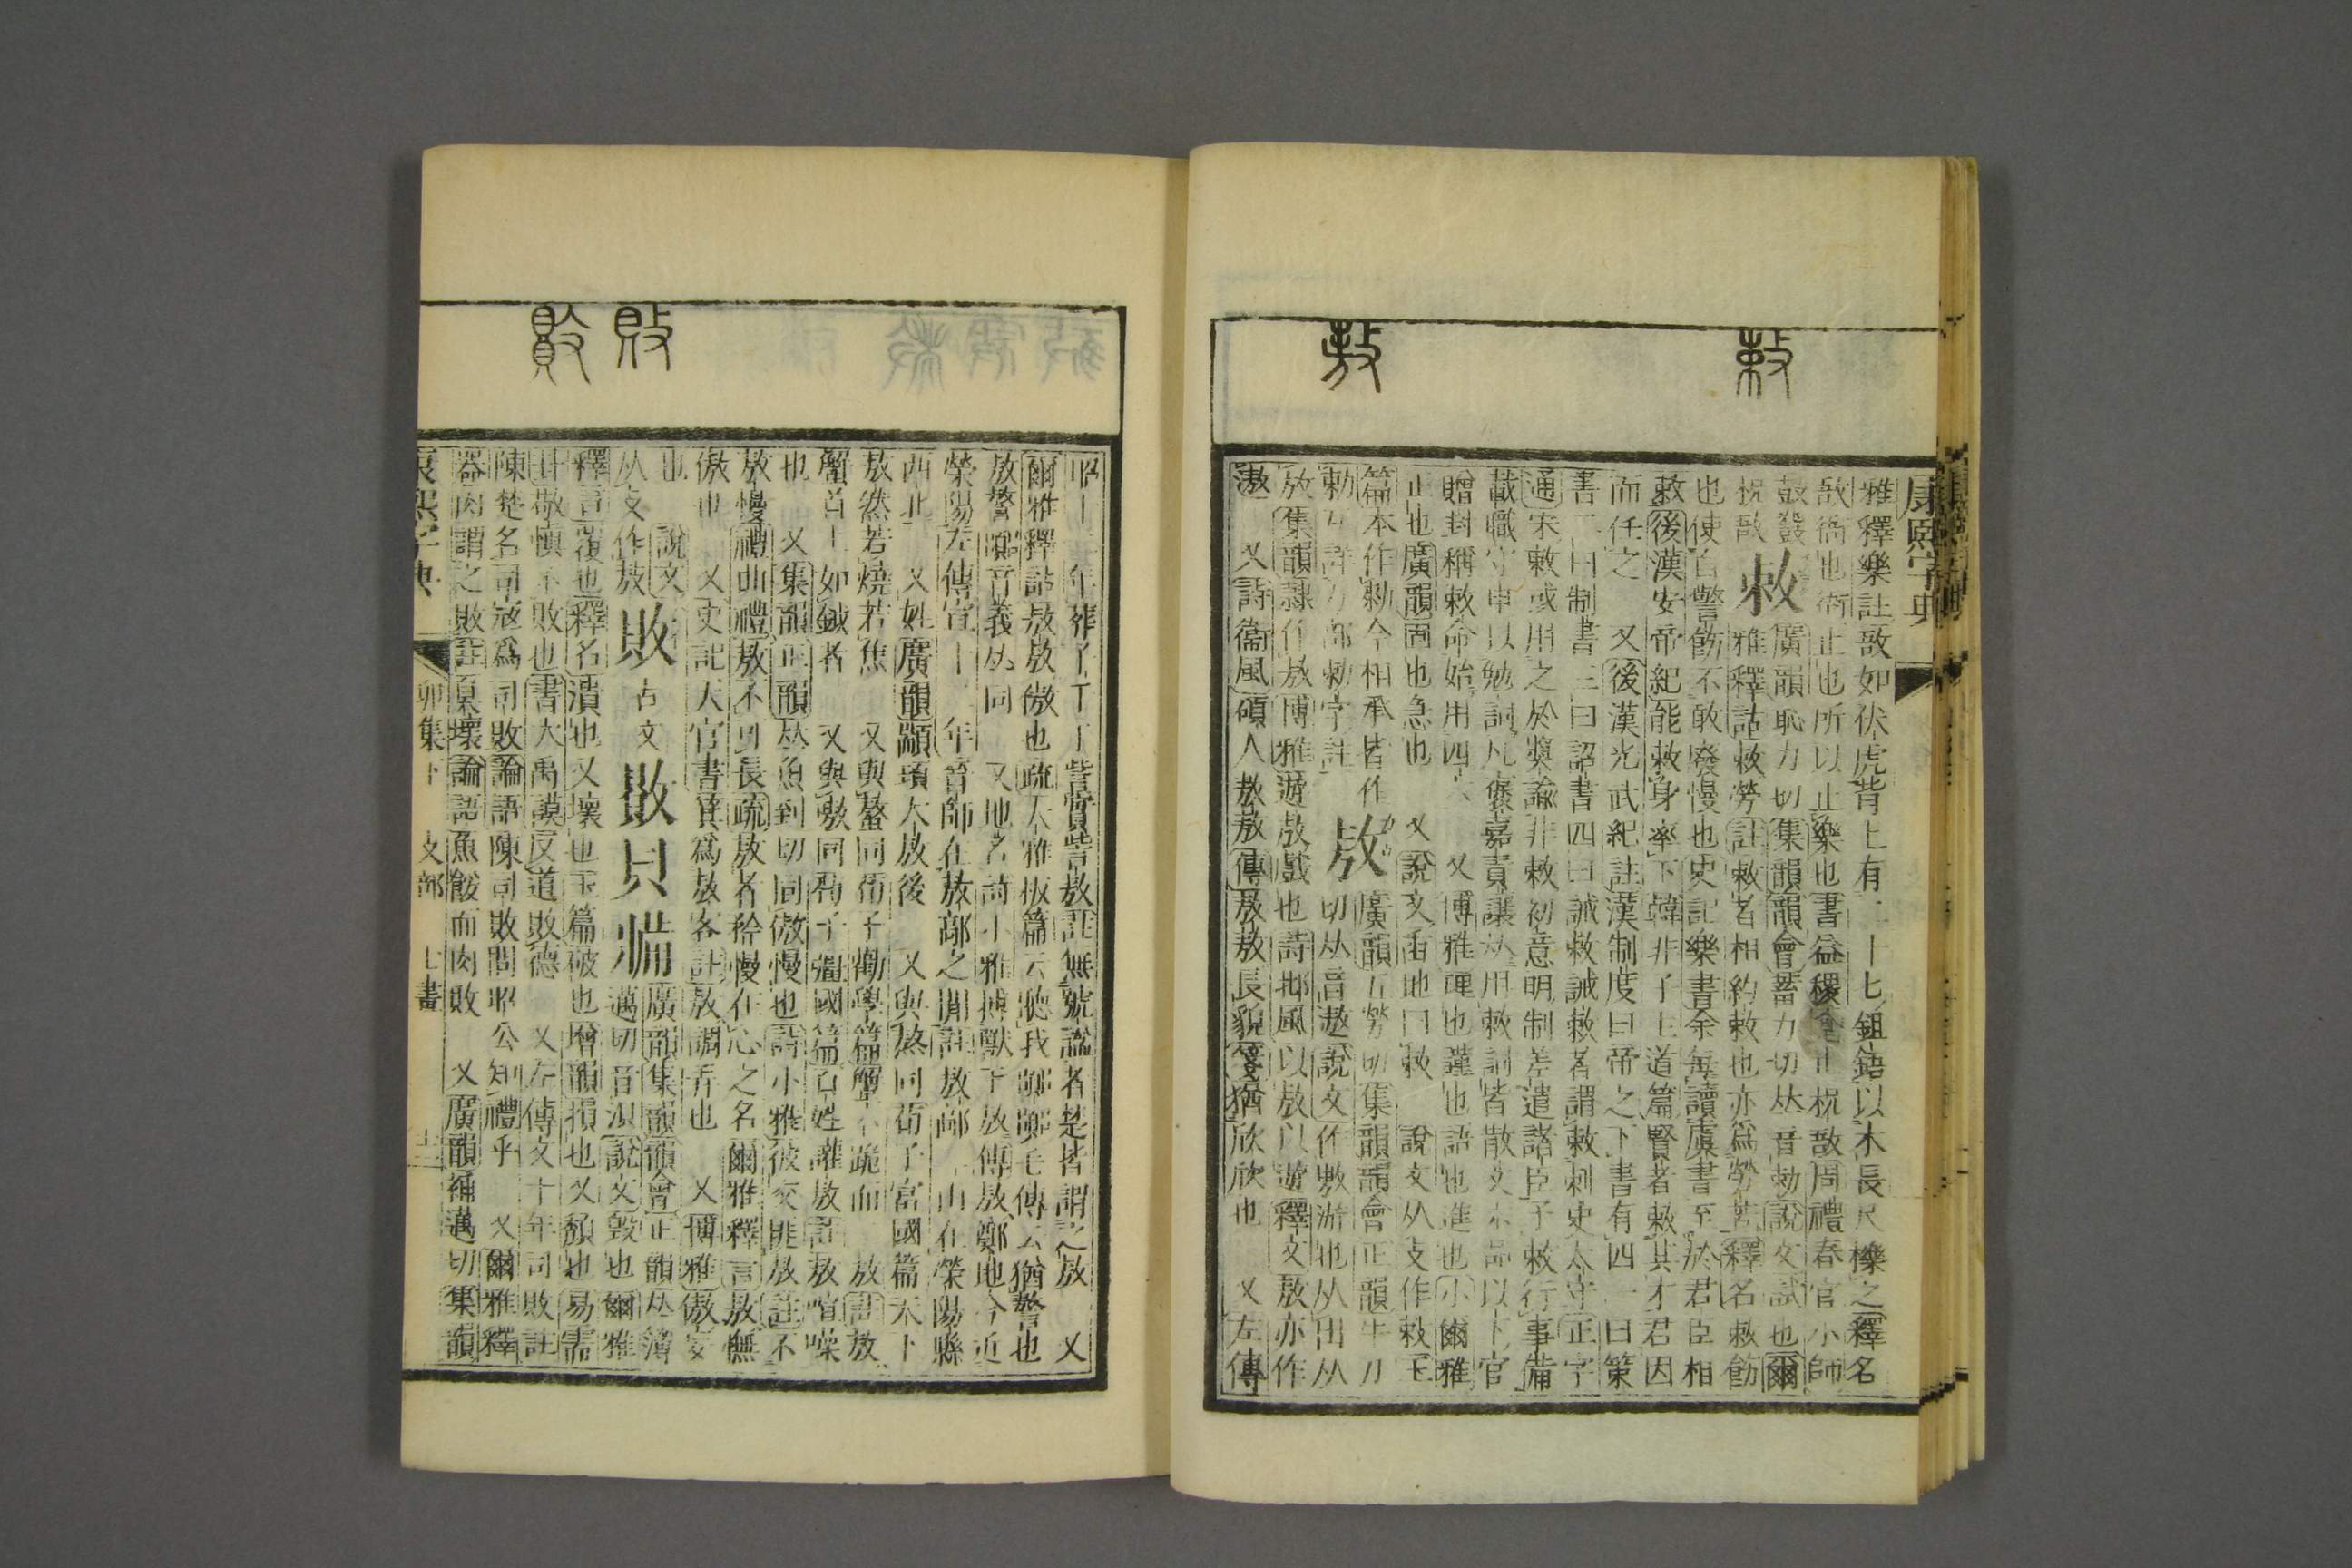 康熙字典
敕
敖
雅釋樂註敔如伏虎背上有二十七鉏鋙以木長尺櫟之釋名
敔衙也衙止也所以止樂也書益稷合止柷敔周禮春官小師
鼓鼗柷敔
敕
廣韻恥力切集韻韻會蓄力切𠀤音勅說文誡也爾
雅釋詁敕勞註敕者相約敕也亦爲勞苦釋名敕飭
也使自警飭不敢廢慢也史記樂書余每讀虞書至於君臣相
敕後漢安帝紀能敕身率下韓非子主道篇賢者敕其才君因
而任之　又後漢光武紀註漢制度曰帝之下書有四一曰策
書二曰制書三曰詔書四曰誡敕誡敕者謂敕刺史太守正字
通宋敕或用之於奬諭非敕初意明制差遣諸臣予敕行事備
載職守申以勉詞凡褒嘉責讓𠀤用敕詞皆散文六品以下官
贈封稱敕命始用四六　又博雅理也謹也語也進也小爾雅
正也廣韻固也急也　又說文臿地曰敕　說文从攴作敕玉
篇本作勑今相承皆作
勅互詳力部勑字註
敖
廣韻五勞切集韻韻會正韻牛刀
切𠀤音遨說文作敷游也从出从
放集韻隷作敖博雅遊敖戲也詩邶風以敖以遊釋文敖亦作
遨　又詩衞風碩人敖敖傳敖敖長貌箋猶欣欣也　又左傳
敗
昭十三年葬子干于訾實訾敖註無號諡者楚皆謂之敖　又
爾雅釋訓敖敖傲也疏大雅板篇云聽我嚻嚻毛傳云猶謷也
敖謷嚻音義𠀤同　又地名詩小雅搏獸于敖傳敖鄭地今近
滎陽左傳宣十二年晉師在敖鄗之閒註敖鄗二山在滎陽縣
西北　又姓廣韻顓頊大敖後　又與熬同荀子富國篇天下
敖然若燒若焦　又與螯同荀子勸學篇蟹六跪而二敖註敖
蟹首上如鉞者　又與嗷同荀子彊國篇百姓讙敖註敖喧噪
也　又集韻正韻𠀤魚到切同傲慢也詩小雅彼交匪敖註不
敖慢禮曲禮敖不可長疏敖者矜慢在心之名爾雅釋言敖憮
傲也　又史記天官書箕爲敖客註敖調弄也　又博雅傲妄
也　說文
从攴作敖
敗
古文
敗
廣韻集韻韻會正韻𠀤薄
邁切音浿說文毀也爾雅
釋言覆也釋名潰也又壞也玉篇破也增韻損也又頹也易需
卦敬愼不敗也書大禹謨反道敗德　又左傳文十年司敗註
陳楚名司寇爲司敗論語陳司敗問昭公知禮乎　又爾雅釋
器肉謂之敗註臭壞論語魚餒而肉敗　又廣韻補邁切集韻
康熙字典
卯集下　攴部　七畫